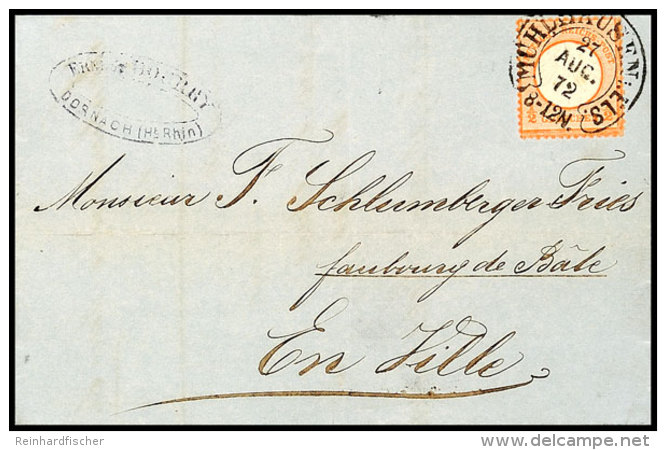 DORNACH (Ht Rhin)
MÜHLHAUSEN i. ELS.
27
AUG.
72
8-12N.
Monsieur F. Schlumberger Fries
faubourg de Bâle
En Ville
Reinhardfischer
delcampe.net